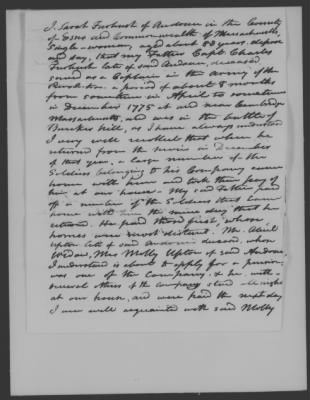 I, Sarah Furbush of Andover in the County
of Essex and Commonwealth of Massachusetts,
Single-woman, aged about 83 years, depose
and say, that my Father Capt. Charles
Furbush late of said Andover, deceased
served as a Captain in the Army of the
Revolution a period of about 8 months
from sometime in April to sometime
in December 1775 at and near Cambridge
Massachusetts, and was in the battle of
Bunker hill, as I have always understood
I very well recollect that when he
returned from the service in December
of that year, a large number of the
Soldiers belonging to his Company came
home with him and took their pay of
him at our house. My said Father paid
off a number of the Soldiers that came
home with him the same day that he
returned. He paid those first, whose
homes were most distant. Mr. Abiel
Upton late of said Andover deceased, whose
Widow, Mrs Molly Upton of said Andover,
I understand is about to apply for a pension,
was one of the Company. & he with
several others of the company stood all night
at our house, and were paid the next day
I am well acquainted with said Molly